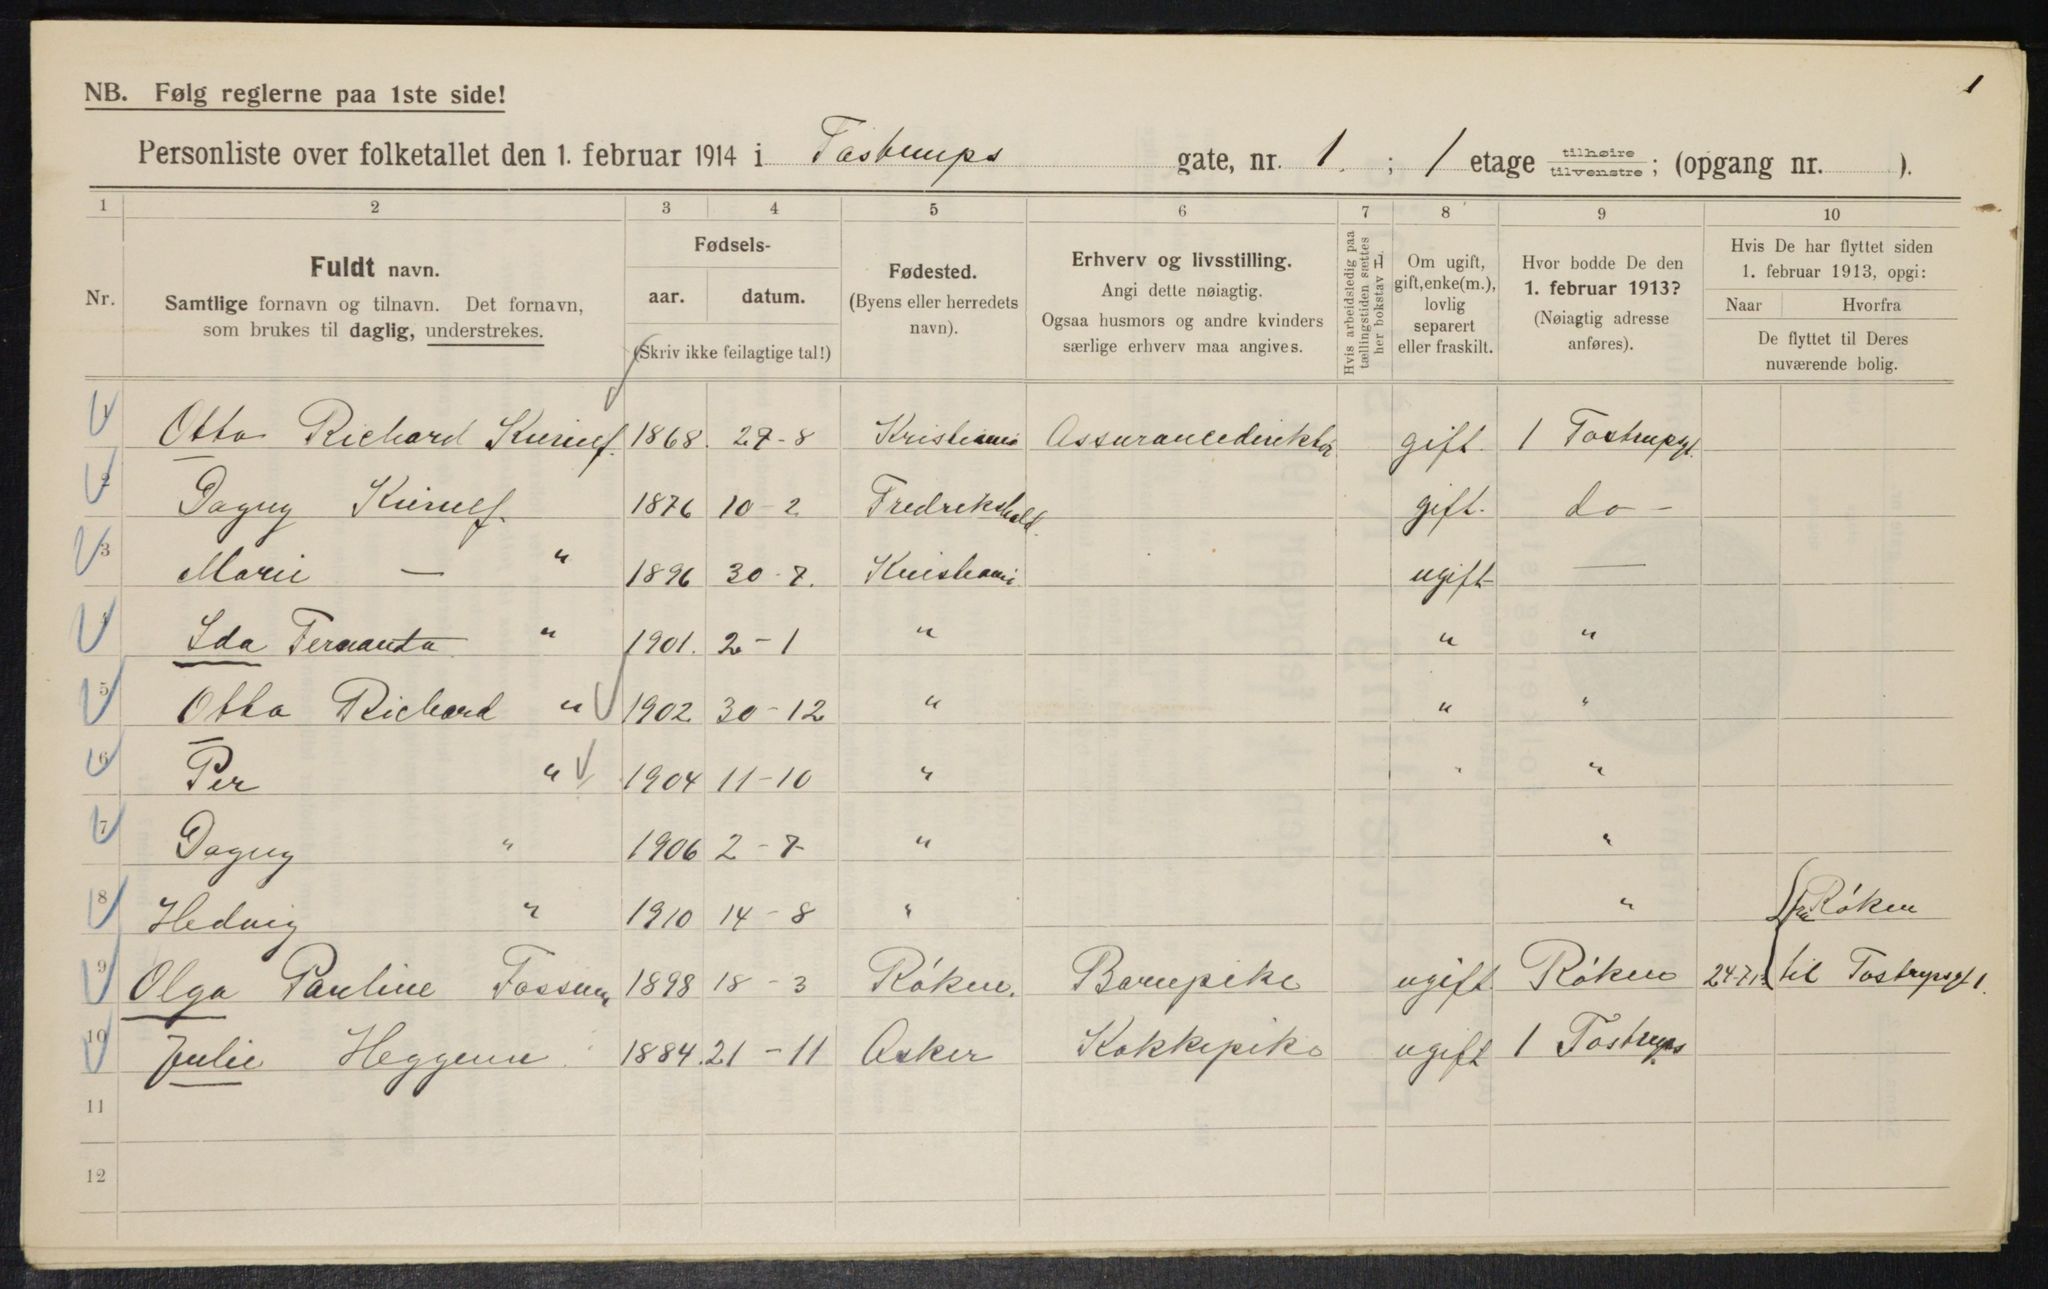 1
NB. Følg reglerne paa 1ste side!
Personliste over folketallet den 1. februar 1914 i Tostrups gate, nr. 1 ; 1 etage tilhøire tilvenstre ; (opgang nr. ).
1 2 3 4 5 6 7 8 9 10
Nr.
Fuldt navn.
Samtlige fornavn og tilnavn. Det fornavn,
som brukes til daglig, understrekes.
Fødsels-
aar. datum.
(Skriv ikke feilagtige tal!)
Fødested.
(Byens eller herredets
navn).
Erhverv og livsstilling.
Angi dette nøiagtig.
Ogsaa husmors og andre kvinders
særlige erhverv maa angives.
Hvis arbeidsledig paa
tællingstiden sættes
her bokstav L.
Om ugift,
gift, enke(m.),
lovlig
separert
eller fraskilt.
Hvor bodde De den
1. februar 1913?
(Nøiagtig adresse
anføres).
Hvis De har flyttet siden
1. februar 1913, opgi:
Naar Hvorfra
De flyttet til Deres
nuværende bolig.
1 Otto Richard 1868. 27-8 Kristiania Assurancedirektør gift. 1 Tostrupsgt.
2 Dagny 1876 10-2 Fredrikshald. gift. do -
3 Marie — " 1896 30-7. Kristiania ugift —
4 Ida Fernanda " 1901. 2-1 " " "
5 Otto Richard " 1902 30-12 " " "
6 Per " 1904 11-10 " " "
7 Dagny " 1906 2-7 " "
8 Hedvig " 1910 14-8 " " fra Røken
9 Olga Pauline Fossum 1898 18-3 Røken. Barnepike ugift Røken til Tostrupsgt 1.
10 Julie 1884. 21-11 Asker Kokkepike ugift 1 Tostrups
11
12